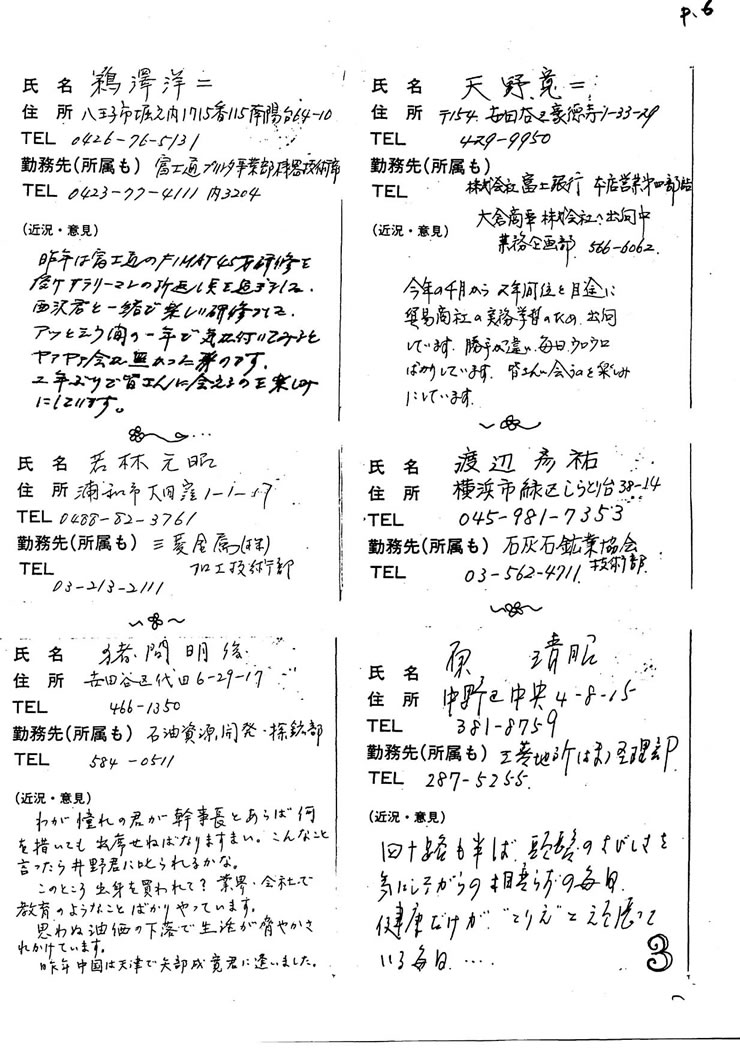 P.6
氏 名 鵜澤洋二
住 所 八王子市堀之内1715番115南陽台64-10
TEL 0426-76-5131
勤務先(所属も) 富士通 事業部 技術部
TEL 0423-77-4111 内3204
(近況・意見)
昨年は富士通のFIMAT45才研修を
受けサラリーマンの折返し点を過ぎまして、
西沢君と一緒で楽しい研修でした。
アッという間の一年で気が付いてみると
会は無かった のです。
2年ぶりで皆さんに会えるのを楽しみ
にしています。
氏 名 若林元昭
住 所 浦和市大田窪1-1-17
TEL 0488-82-3761
勤務先(所属も) 三菱金属(株)
加工技術部
TEL 03-213-2111
氏 名 猪間明俊
住 所 世田谷区代田6-29-17
TEL 466-1350
勤務先(所属も) 石油資源開発・探鉱部
TEL 584-0511
(近況・意見)
わが憧れの君が幹事長とあらば何
を措いても出席せねばなりますまい。こんなこと
言ったら井野君に叱られるかな。
このところ出身を買われて?業界・会社で
教育のようなことばかりやっています。
思わぬ油価の下落で生活が脅やかさ
れかけています。
昨年中国は天津で矢部成寛君に逢いました。
氏 名 天野 二
住 所 〒154 世田谷区豪徳寺1-33-29
TEL 429-9950
勤務先(所属も)
TEL 株式会社富士銀行 本店営業第四部
大倉商事株式会社へ出向中
業務企画部 566-6062
(近況・意見)
今年の4月から2年間位を目途に
貿易商社の実務学習のため、出向
しています。勝手が違い毎日ウロウロ
ばかりしています。皆さんに会うのを楽しみ
にしています。
氏 名 渡辺彦祐
住 所 横浜市緑区しらとり台38-14
TEL 045-981-7353
勤務先(所属も) 石灰石鉱業協会
技術部
TEL 03-562-4711
氏 名 原 靖昭
住 所 中野区中央4-8-15
TEL 381-8759
勤務先(所属も) 三菱地所(株)経理部
TEL 287-5255
(近況・意見)
四十路も半ば、頭髪のさびしさを
気にしながらの相変らずの毎日
健康だけが"とりえ"と頑張って
いる毎日....
3